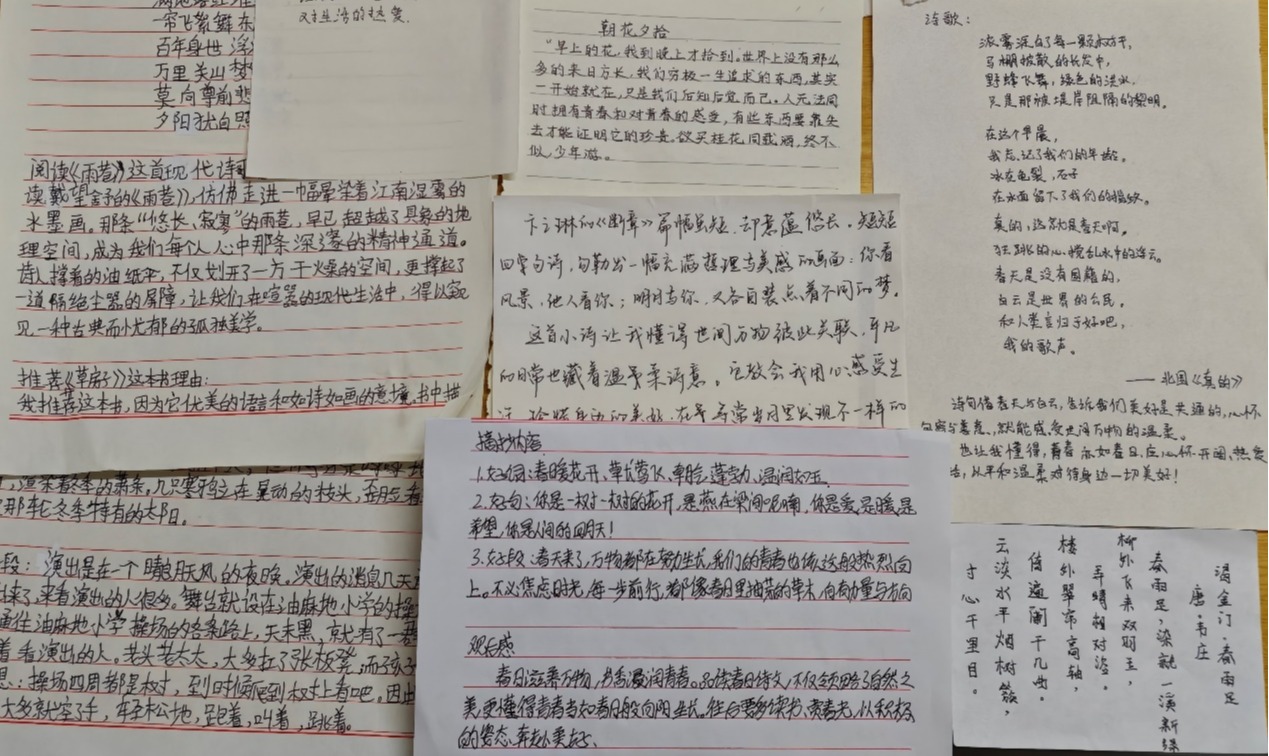 一帘飞絮舞东
百年身世浮
万里关山梦
莫向尊前悲
夕阳犹自照
阅读《雨巷》这首现代诗
读戴望舒的《雨巷》，仿佛走进一幅晕染着江南湿雾的
水墨画。那条“悠长、寂寥”的雨巷，早已超越了具象的地
理空间，成为我们每个人心中那条深邃的精神通道。
诗人撑着的油纸伞，不仅划开了一方干燥的空间，更撑起了
一道隔绝尘嚣的屏障，让我们在喧嚣的现代生活中，得以窥
见一种古典而忧郁的孤独美学。
推荐《草房子》这本书理由：
我推荐这本书，因为它优美的语言和如诗如画的意境，书中描
对生活的热爱。
朝花夕拾
“早上的花，我到晚上才拾到。世界上没有那么
多的来日方长，我们穷极一生追求的东西，其实
一开始就在，只是我们后知后觉而已。人无法同
时拥有青春和对青春的感受，有些东西要靠失
去才能证明它的珍贵。欲买桂花同载酒，终不
似，少年游。
卞之琳的《断章》篇幅虽短，却意蕴悠长。短短
四常句诗，勾勒出一幅充满哲理与美感的画面：你看
风景，他人看你；明月与你，又各自装点着不同的梦。
这首小诗让我懂得世间万物彼此关联，平凡
的日常也藏着温柔诗意。它教会我用心感受生
活，珍惜身边的美好，在寻常岁月里发现不一样的
诗歌：
浓雾浸白了每一颗树干，
马棚披散的长发中，
野蜂飞舞，绿色的洪水
只是那被堤岸阻隔的黎明。
在这个早晨，
我忘记了我们的年龄。
冰在龟裂，石子
在水面留下了我们的指纹。
真的，这就是春天啊。
狂跳的心搅乱水中的浮云。
春天是没有国籍的，
白云是世界的公民。
和人类言归于好吧，
我的歌声。
——北岛《真的》
诗句借春天与白云，告诉我们美好是共通的，心怀
善意，就能感受世间万物的温柔。
也让我懂得，青春亦如春日，应心怀开阔，热爱
活，以平和温柔对待身边一切美好！
渲染着冬季的萧条，几只寒鸦立在晃动的枝头，
那轮冬季特有的太阳。
段：演出是在一个晴朗无风的夜晚。演出的消息几天
来了，来看演出的人很多。舞台就设在油麻地小学的操
通往油麻地小学操场的各条路上，天未黑，就有了一
看演出的人。老头老太太，大多扛了张板凳，而孩子
思：操场四周都是树，到时候爬到树上看吧。因
大多就空了手，轻轻松松地，跑着，叫着，跳着。
摘抄内容
1.好词：春暖花开、草长莺飞、卑怯、蓬勃、温润如玉
2.好句：你是一树一树的花开，是燕在梁间呢喃，你是爱，是暖，是
希望，你是人间的四月天！
3.好段：春天来了，万物都在努力生长，我们的青春也该这般热烈向
上。不必焦虑时光，每一步前行，都像春日里抽芽的草木，向有力量与方向
观后感
春日滋养万物，书香浸润青春。品读春日诗文，不仅领略了自然之
美，更懂得青春当如春日般向阳生长。往后要多读书、惜春光，以积极
的姿态，奔赴美好。
谒金门·春雨足
唐·韦庄
春雨足，染就一溪新绿
柳外飞来双羽玉，
弄晴相对浴。
楼外翠帘高轴，
倚遍阑干几曲。
云淡水平烟树簇，
寸心千里目。